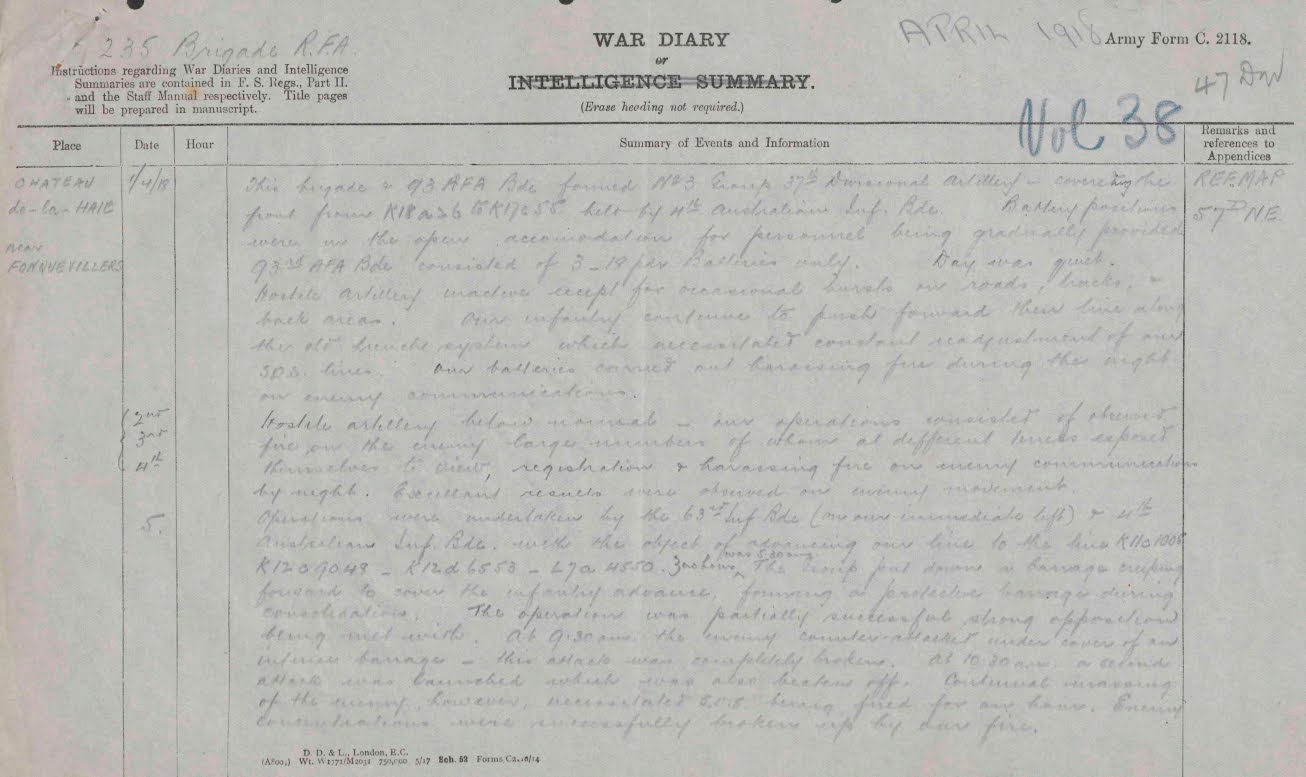 235 Brigade R.F.A.
APRIL 1918
WAR DIARY
or
INTELLIGENCE SUMMARY.
(Erase heading not required.)
Army Form C. 2118.
47 Div
Vol 38
Instructions regarding War Diaries and Intelligence
Summaries are contained in F. S. Regs., Part II.
and the Staff Manual respectively. Title pages
will be prepared in manuscript.
Place
Date
Hour
Summary of Events and Information
Remarks and
references to
Appendices
CHATEAU
de-la-HAIE
near
FONQUEVILLERS
1/4/18
REF. MAP
57D NE
This brigade & 93 AFA Bde formed No 3 Group 37th Divisional Artillery - covering the
front from K18a26 to K17c55 held by 4th Australian Inf. Bde. Battery positions
were in the open, accomodation for personnel being gradually provided
93rd AFA Bde consisted of 3 - 18 pdr Batteries only. Day was quiet.
Hostile Artillery inactive except for occasional bursts on roads, tracks, &
back areas. Our infantry continue to push forward their line along
the old trench system which necessitated constant readjustment of our
S.O.S. lines. Our batteries carried out harassing fire during the night
on enemy communications.
2nd
3rd
4th
Hostile artillery below normal - our operations consisted of observed
fire on the enemy large numbers of whom at different times exposed
themselves to view, registration & harassing fire on enemy communications
by night. Excellent results were observed on enemy movement.
5.
Operations were undertaken by the 63rd Inf Bde (on our immediate left) & 4th
Australian Inf. Bde. with the object of advancing our line to the line
K12d6553 - L7a4550. Zero hour was 5.30 am. The Group put down a barrage creeping
forward to cover the infantry advance, forming a protective barrage during
consolidation. The operation was partially successful strong opposition
being met with. At 9.30 am. the enemy counter-attacked under cover of an
intense barrage - this attack was completely broken. At 10.30 am. a second
attack was launched which was also beaten off. Continual massing
of the enemy, however, necessitated S.O.S. being fired for an hour. Enemy
concentrations were successfully broken up by our fire.
D. D. & L., London, E.C.
(A800.) Wt. W1771/M2031 750,000 5/17 Sch. 52 Forms/C2118/14